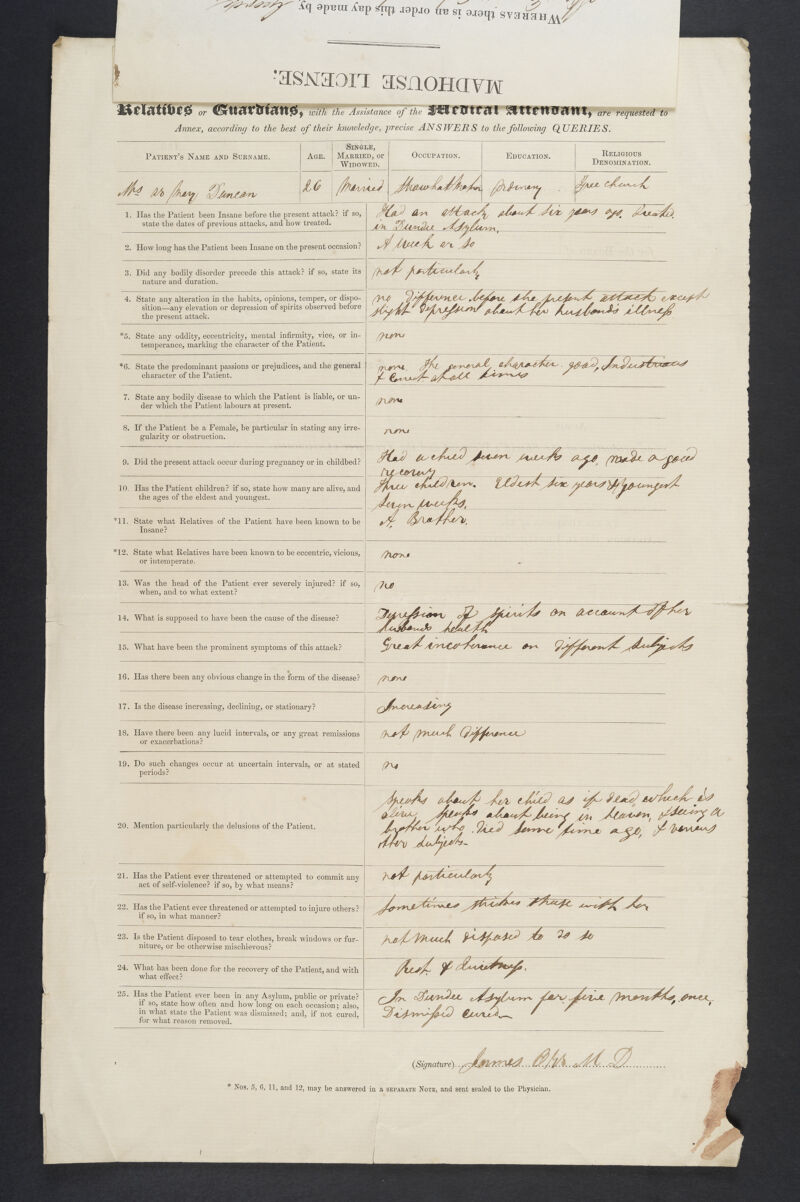 WHEREAS there is an order this day made by
MADHOUSE LICENSE;
Relatives or Guardians, with the Assistance of the Medical Attendant, are requested to
Annex, according to the best of their knowledge, precise ANSWERS to the following QUERIES.
PATIENT'S NAME AND SURNAME. AGE. SINGLE, MARRIED, OR WIDOWED. OCCUPATION. EDUCATION. RELIGIOUS DENOMINATION.
Mrs or Mary Duncan 26 Married Strawhatmaker ordinary Free church
1. Has the Patient been Insane before the present attack? if so,
state the dates of previous attacks, and how treated.
Had an attack about six years ago, treated
in Dundee Asylum.
2. How long has the Patient been Insane on the present occasion?
A week or so
3. Did any bodily disorder precede this attack? if so, state its
nature and duration.
not particularly
4. State any alteration in the habits, opinions, temper, or dispo-
sition—any elevation or depression of spirits observed before
the present attack.
no difference before the present attack except
slight depression about her husbands illness
*5. State any oddity, eccentricity, mental infirmity, vice, or in-
temperance, marking the character of the Patient.
none
*6. State the predominant passions or prejudices, and the general
character of the Patient.
none The general character good, Industrious
& Correct at all times
7. State any bodily disease to which the Patient is liable, or un-
der which the Patient labours at present.
none
8. If the Patient be a Female, be particular in stating any irre-
gularity or obstruction.
none
9. Did the present attack occur during pregnancy or in childbed?
Had a child seven weeks ago, made a good
recovery
10. Has the Patient children? if so, state how many are alive, and
the ages of the eldest and youngest.
Three children. Eldest six years & youngest
Seven weeks.
*11. State what Relatives of the Patient have been known to be
Insane?
A Brother.
*12. State what Relatives have been known to be eccentric, vicious,
or intemperate.
none
13. Was the head of the Patient ever severely injured? if so,
when, and to what extent?
no
14. What is supposed to have been the cause of the disease?
Depression of spirits on account of her
husbands health
15. What have been the prominent symptoms of this attack?
Great incoherence on different subjects
16. Has there been any obvious change in the form of the disease?
none
17. Is the disease increasing, declining, or stationary?
Increasing
18. Have there been any lucid intervals, or any great remissions
or exacerbations?
not much difference
19. Do such changes occur at uncertain intervals, or at stated
periods?
no
20. Mention particularly the delusions of the Patient.
Speaks about her child as if dead, which is
alive, speaks about being in heaven, & seeing a
brother who died some time ago, & various
other subjects.
21. Has the Patient ever threatened or attempted to commit any
act of self-violence? if so, by what means?
not particularly
22. Has the Patient ever threatened or attempted to injure others?
if so, in what manner?
Sometimes strikes those with her
23. Is the Patient disposed to tear clothes, break windows or fur-
niture, or be otherwise mischievous?
not much disposed to do so
24. What has been done for the recovery of the Patient, and with
what effect?
Rest & Quietness.
25. Has the Patient ever been in any Asylum, public or private?
if so, state how often and how long on each occasion; also,
in what state the Patient was dismissed; and, if not cured,
for what reason removed.
In Dundee Asylum for five months, once,
Dismissed cured
(Signature) James M D
* Nos. 5, 6, 11, and 12, may be answered in a SEPARATE NOTE, and sent sealed to the Physician.